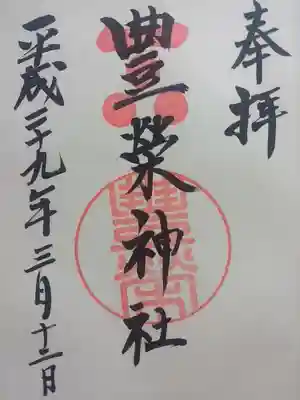 奉拝
豐栄神社
平成二十九年三月十二日